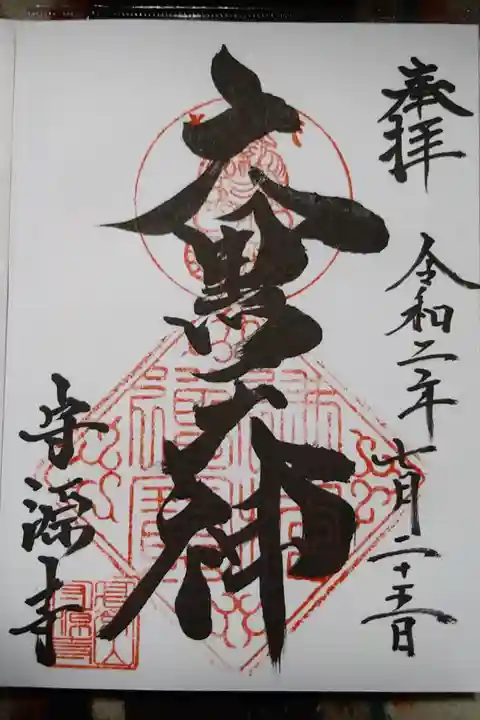 奉拝
令和二年 七月二十五日
大黒天神
守源寺